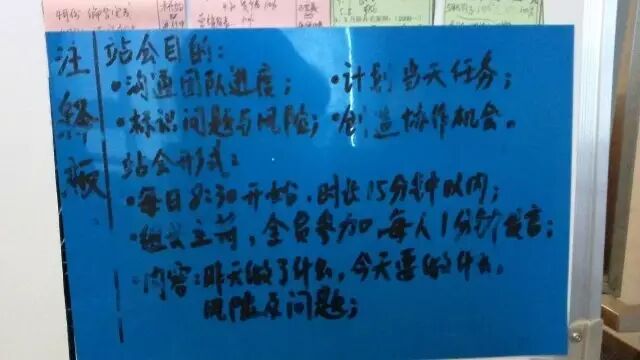 注释板
站会目的：
·沟通团队进度； ·计划当天任务；
·标识问题与风险； ·创造协作机会。
站会形式：
·每日8:30开始，时长15分钟以内；
·组长主荷，全员参加，每人1分钟发言；
·内容：昨天做了什么，今天要做什么，
风险及问题；